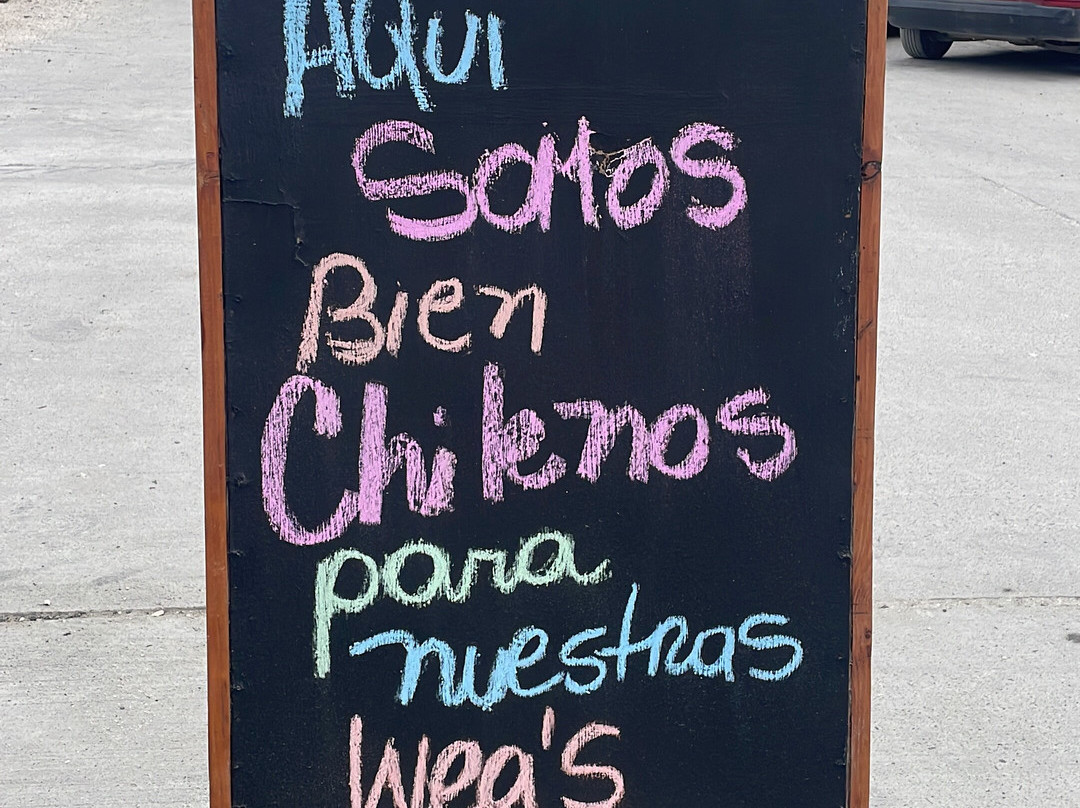 Aqui
Somos
Bien
Chilenos
para
nuestras
Wea's